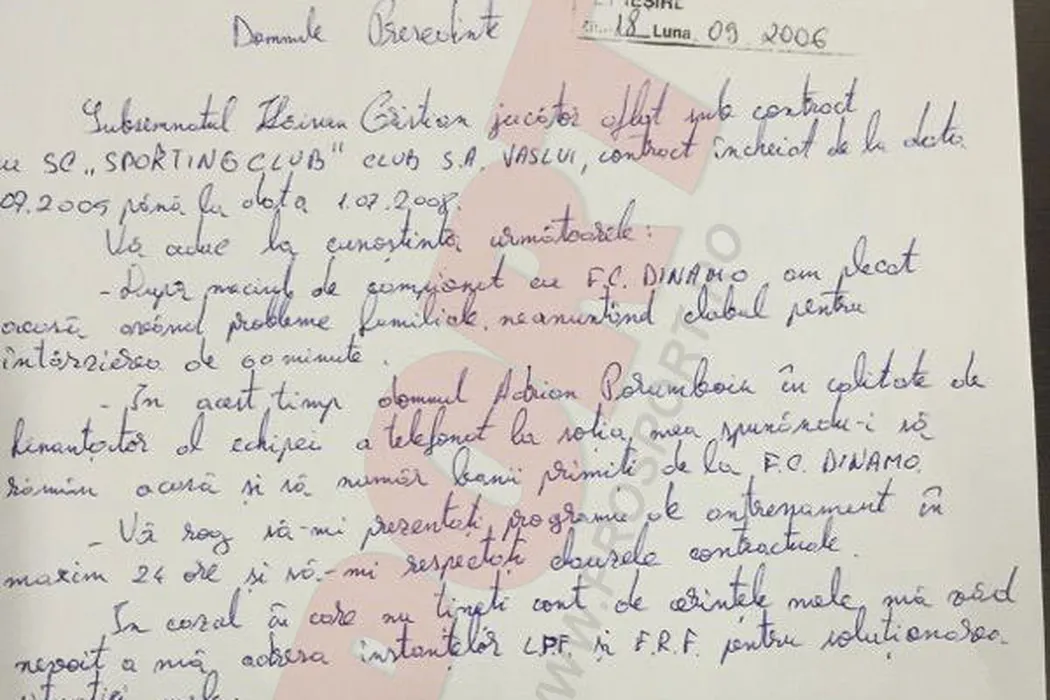 IEȘIRE
18 Luna 09 2006
Domnule Președinte
Subsemnatul Cristian jucător aflat sub contract
cu SC „SPORTING CLUB" CLUB S.A. VASLUI, contract încheiat de la data
07.2005 până la data 1.07.2008.
Vă aduc la cunoștință următoarele:
- După meciul de campionat cu F.C. DINAMO am plecat
acasă având probleme familiale, neanunțând clubul pentru
întârzierea de 90 minute.
- În acest timp domnul Adrian Porumboiu în calitate de
finanțator al echipei a telefonat la soția mea spunându-i să
rămân acasă și să număr banii primiți de la F.C. DINAMO.
- Vă rog să-mi prezentați programul de antrenament în
maxim 24 ore și să-mi respectați clauzele contractuale.
În cazul în care nu țineți cont de cerințele mele, mă văd
nevoit a mă adresa instanțelor L.P.F. și F.R.F. pentru soluționarea
PROSPORT
www.PROSPORT.RO